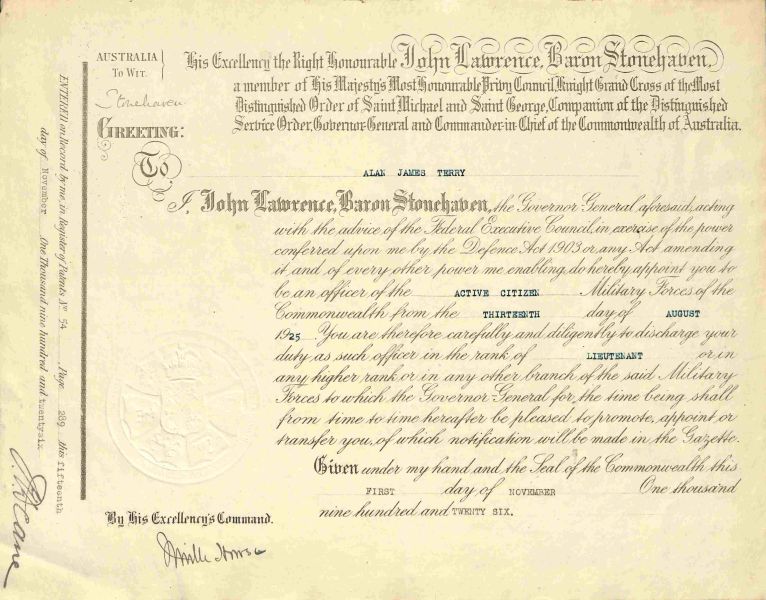 AUSTRALIA
TO WIT.
Stonehaven
GREETING:
His Excellency the Right Honourable John Lawrence, Baron Stonehaven,
a member of His Majesty's Most Honourable Privy Council, Knight Grand Cross of the Most
Distinguished Order of Saint Michael and Saint George, Companion of the Distinguished
Service Order, Governor-General and Commander-in-Chief of the Commonwealth of Australia.
To
ALAN JAMES TERRY
I, John Lawrence, Baron Stonehaven, the Governor General aforesaid, acting
with the advice of the Federal Executive Council, in exercise of the power
conferred upon me by the Defence Act 1903 or any Act amending
it and of every other power me enabling, do hereby appoint you to
be an officer of the ACTIVE CITIZEN Military Forces of the
Commonwealth from the THIRTEENTH day of AUGUST
1925. You are therefore carefully and diligently to discharge your
duty as such officer in the rank of LIEUTENANT or in
any higher rank or in any other branch of the said Military
Forces to which the Governor-General for the time being shall
from time to time hereafter be pleased to promote, appoint or
transfer you, of which notification will be made in the Gazette.
Given under my hand and the Seal of the Commonwealth this
FIRST day of NOVEMBER One thousand
nine hundred and TWENTY SIX.
By His Excellency's Command.
ENTERED on Record by me, in Register of Patents No 54 Page 289 this fifteenth
day of November One Thousand nine hundred and twentysix.